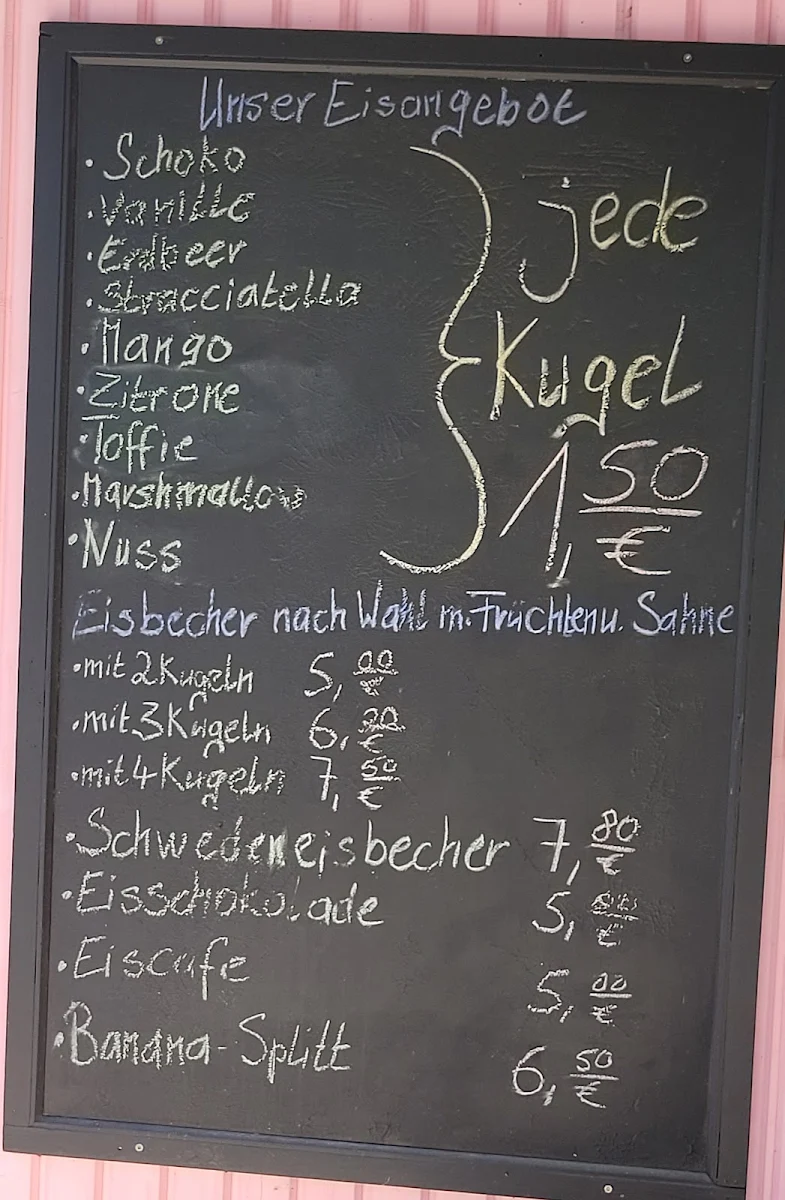 Unser Eisangebot
· Schoko
· Vanille
· Erdbeer
· Stracciatella
· Mango
· Zitrone
· Toffie
· Marshmallow
· Nuss
jede
Kugel
1,50 €
Eisbecher nach Wahl m. Früchten u. Sahne
· mit 2 Kugeln 5,00 €
· mit 3 Kugeln 6, €
· mit 4 Kugeln 7,50 €
· Schwedeneisbecher 7,80 €
· Eisschokolade 5, €
· Eiscafe 5,00 €
· Banana-Splitt 6,50 €